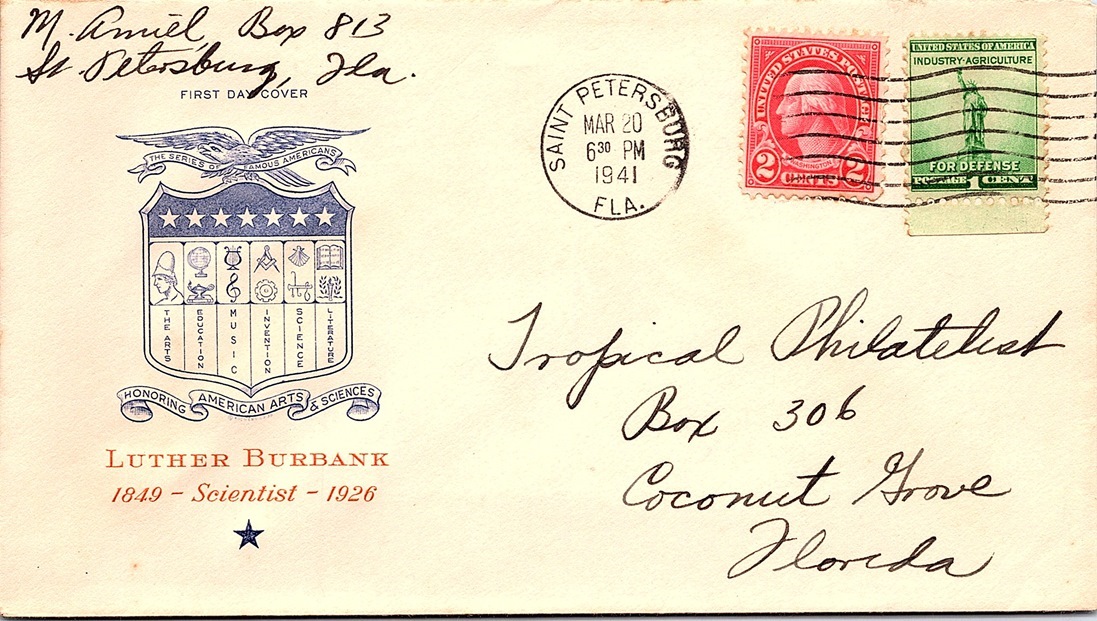 M. Amiel, Box 813
St. Petersburg, Fla.
FIRST DAY COVER
THE SERIES OF FAMOUS AMERICANS
THE ARTS
EDUCATION
MUSIC
INVENTION
SCIENCE
LITERATURE
HONORING AMERICAN ARTS & SCIENCES
LUTHER BURBANK
1849 - Scientist - 1926
SAINT PETERSBURG
MAR 20
6 30 PM
1941
FLA.
UNITED STATES POSTAGE
WASHINGTON
2 CENTS 2
UNITED STATES OF AMERICA
INDUSTRY·AGRICULTURE
FOR DEFENSE
POSTAGE 1 CENT
Tropical Philatelist
Box 306
Coconut Grove
Florida